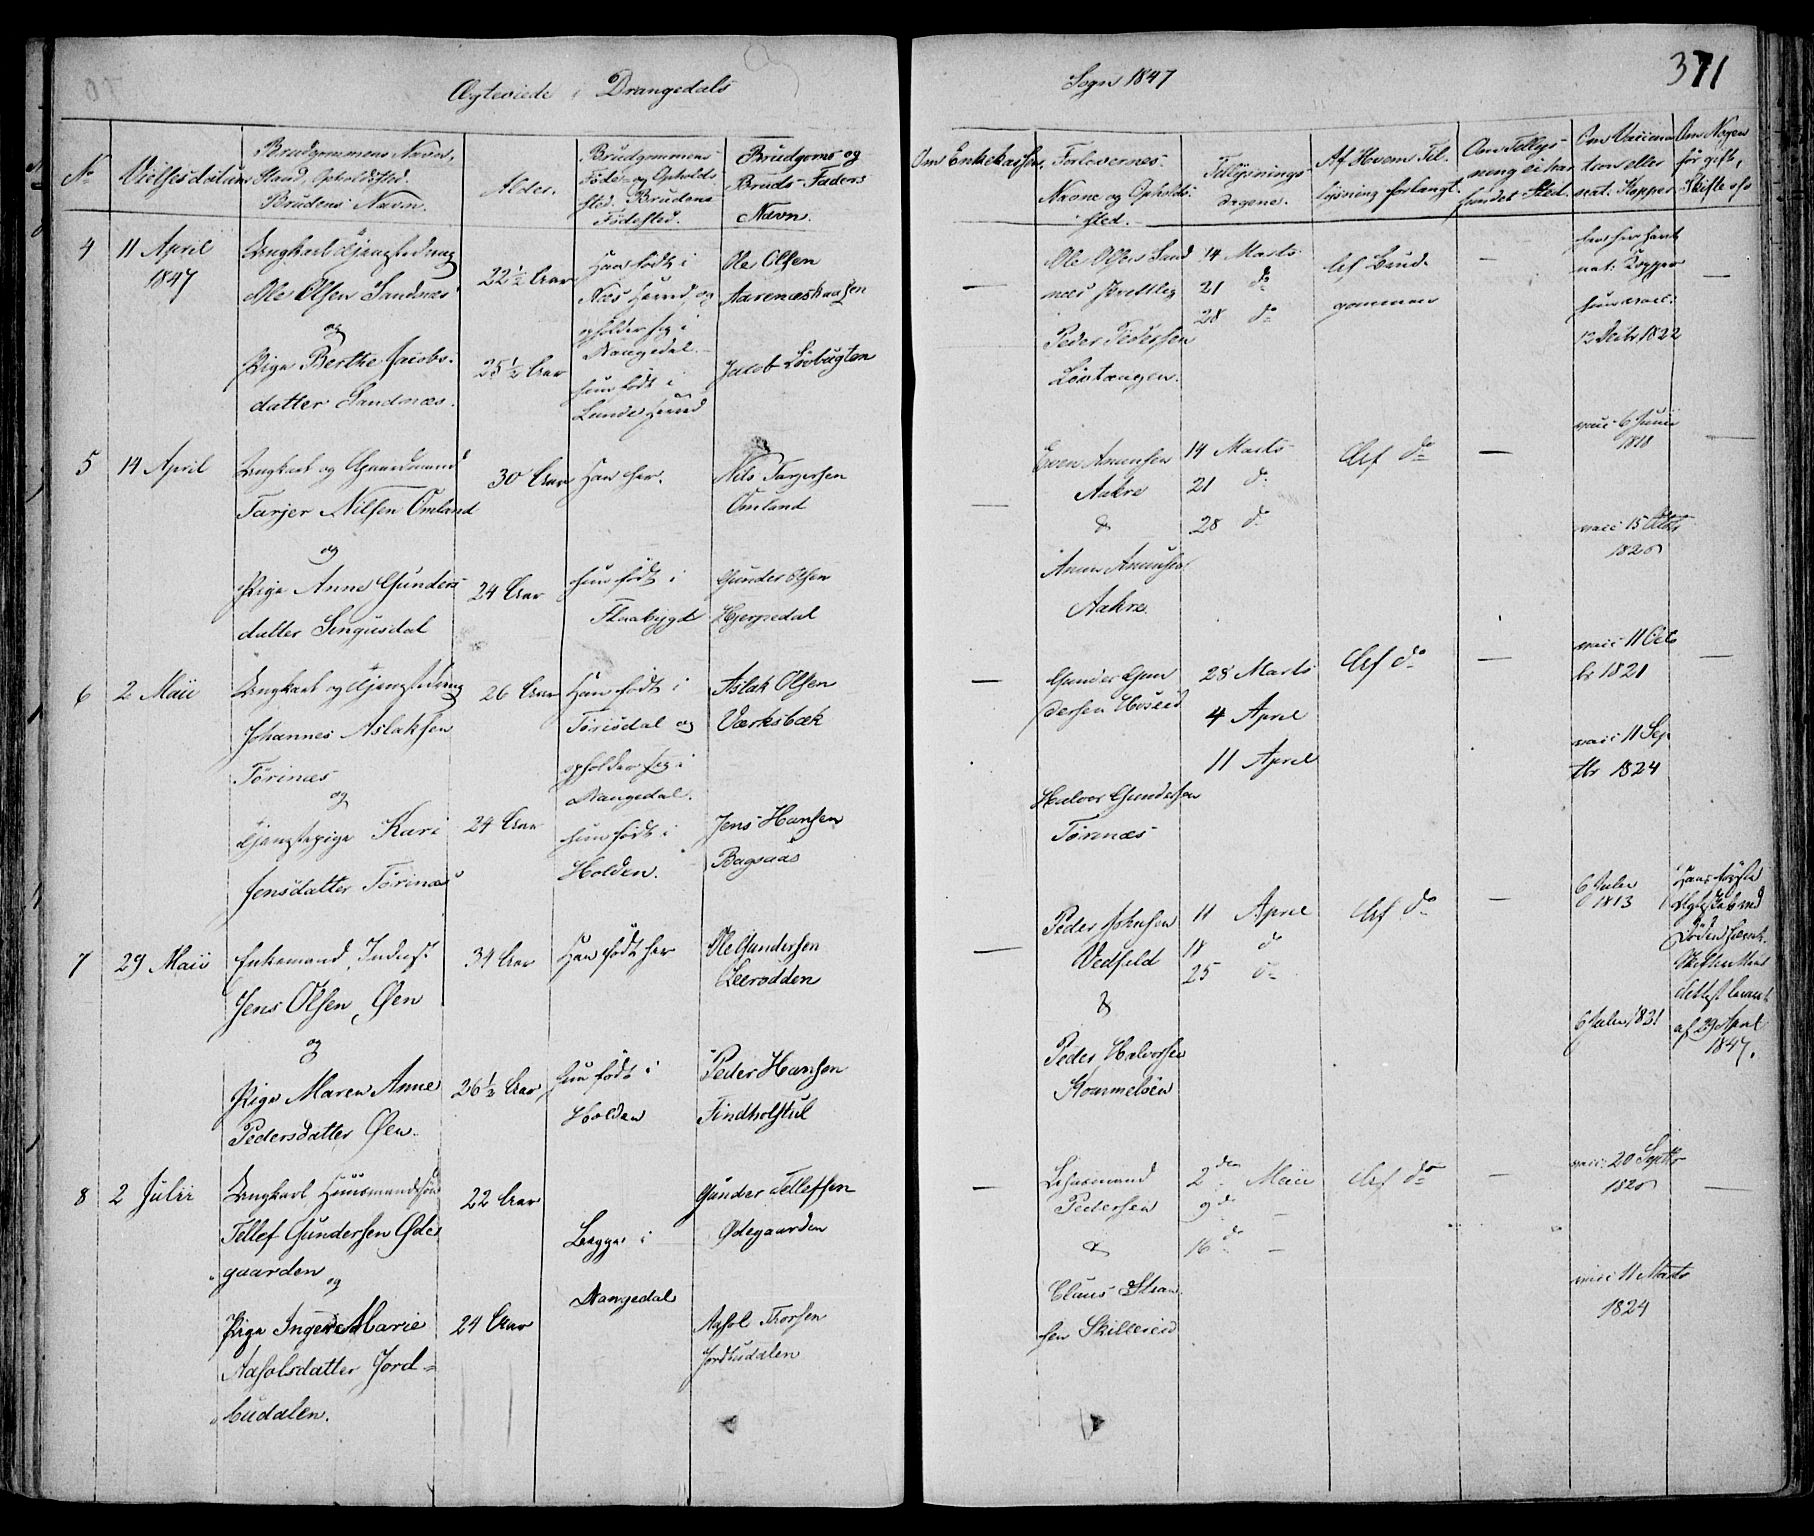 Ægteviede i Drangedals
Sogn 1847
371
No
Vielsesdatum
Brudgommens Navn,
Stand, Opholdssted.
Brudens Navn.
Alder.
Brudgommens
Føde- og Opholds
sted. Brudens
Fødested.
Brudgoms og
Bruds-Faders
Navn.
Om Enkekassen.
Forlovernes
Navne og Opholds-
sted.
Tillysnings-
dagene.
Af Hvem Til-
lysning forlangt.
Om Tillys-
ning ei har
fundet Sted.
Om Vaccina
tion eller
nat. Kopper
Om Nogen
før gift,
Skifte &c
4
11 April
1847
Ungkarl Tjenestedreng
Ole Olsen Sandnæs
og
Pige Berthe Jacobs-
datter Sandnæs.
22 1/2 Aar
25 1/2 Aar
Han født i
Næs
opholder sig i
Drangedal.
hun født i
Lunde
Ole Olsen
Aarenæskaasen
Jacob Løvbugten
—
Ole Olsen Sand
næs
Peder Pedersen
Løvtangen.
14 Marts
21 do
28 do
Af Brud-
gommen
—
nat: Kopper
hun vacc:
12 Octbr 1822
—
5
14 April
Ungkarl og Gaardmand
Tarjer Nilsen Omland
og
Pige Anne Gunders-
datter Sengusdal
30 Aar
24 Aar
Han her.
hun født i
Flaabygd
Nils Tarjersen
Omland
Gunder Olsen
Hjerpedal
—
Even Anunsen
Aakre
&
Anun Anunsen
Aakre.
14 Marts
21 do
28 do
Af do
—
vacc 6 Junii
1818
vacc 15 Octbr
1826
—
6
2 Maii
Ungkarl og Tjenestedreng
Johannes Aslaksen
Tørinæs
og
Tjenestepige Kari
Jensdatter Tørinæs
26 Aar
24 Aar
Han født i
Tørisdal og
opholder sig i
Drangedal.
hun født i
Holden.
Aslak Olsen
Værksbæk
Jens Hansen
Bagaas
—
Gunder Gun
dersen Hoseid
Halvor Gundersen
Tørinæs
28 Marts
4 April
11 April
Af do
—
vacc 11 Oct
br 1821
vacc 11 Sep
tbr 1824
—
7
29 Maii
Enkemand, Inderst
Jens Olsen, Øen
og
Pige Maren Anne
Pedersdatter Øen.
34 Aar
26 1/2 Aar
Han født her
hun født i
Holden
Ole Gundersen
Leerodden
Peder Hansen
Findholstul
—
Peder Johnsen
Vedfald
&
Peder Halvorsen
11 April
18 do
25 do
Af do
—
6 Julii
1813
6 Julii 1821
af 29 April
1847.
8
2 Julii
Ungkarl, Huusmandssøn
Tellef Gundersen Øde-
gaarden
og
Pige Inger Marie
Aasolsdatter Jord-
budalen.
22 Aar
24 Aar
Begge i
Drangedal
Gunder Tellefsen
Ødegaarden
Aasol Thorsen
Jordbudalen
—
Lehnsmand
Pedersen
&
Claus
sen
2den Maii
9de —
16de —
Af do
—
vacc 20 Septbr
1826
vacc 11 Marts
1824
—